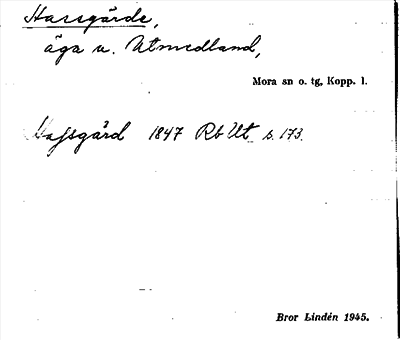 Hassgårde,
äga u. Utmedland,
Mora sn o. tg, Kopp. l.
Hassgård 1847 Rb Ut s. 173.
Bror Lindén 1945.